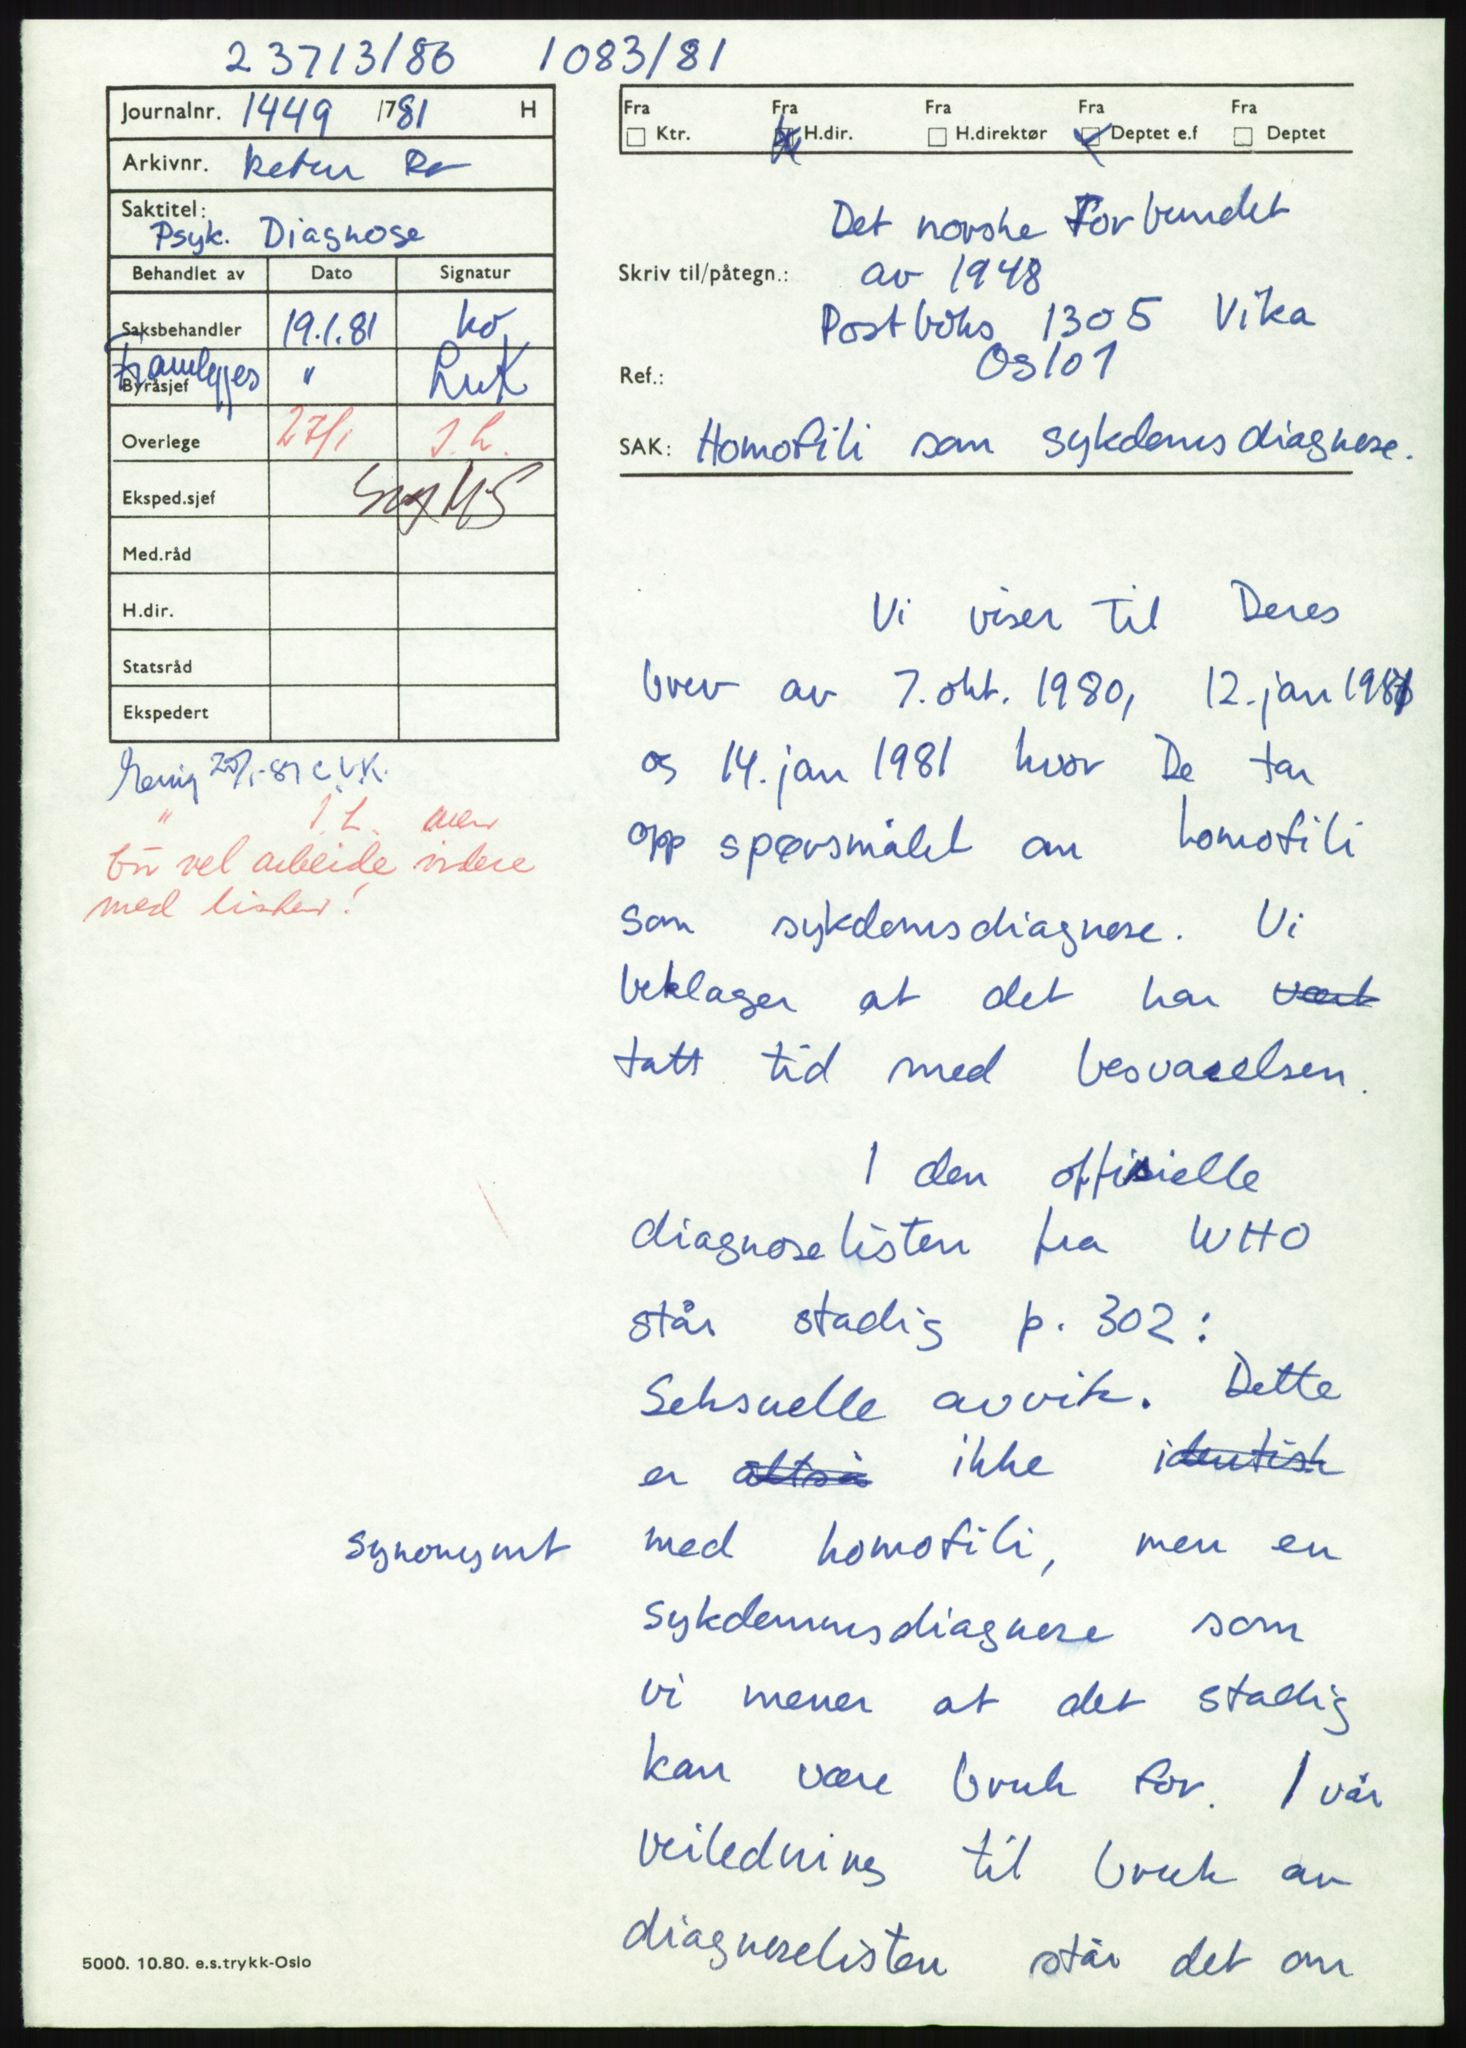 23713/80 1083/81
Journalnr. 1449 /781 H
Arkivnr. retur
Saktitel:
Psyk. Diagnose
Behandlet av Dato Signatur
Saksbehandler 19.1.81 kø
Framlegges
Byråsjef " LuK
Overlege 27/1 J.L.
Eksped.sjef
Med.råd
H.dir.
Statsråd
Ekspedert
Enig 20/1-81 C.V.K.
" J.L. men
bør vel arbeide videre
med listen!
Fra Fra Fra Fra Fra
Ktr. H.dir. H.direktør Deptet e.f Deptet
Det norske Forbundet
Skriv til/påtegn.: av 1948
Postboks 1305 Vika
Oslo 1
Ref.:
SAK: Homofili som sykdomsdiagnose.
Vi viser til Deres
brev av 7. okt. 1980, 12. jan 1981
og 14. jan 1981 hvor De tar
opp spørsmålet om homofili
som sykdomsdiagnose. Vi
beklager at det har vært
tatt tid med besvarelsen.
I den offisielle
diagnoselisten fra WHO
står stadig p. 302:
Seksuelle avvik. Dette
er altså ikke identisk
synonymt med homofili, men en
sykdommsdiagnose som
vi mener at det stadig
kan være bruk for. I vår
veiledning til bruk av
diagnoselisten står det om
5000. 10.80. e.s.trykk-Oslo